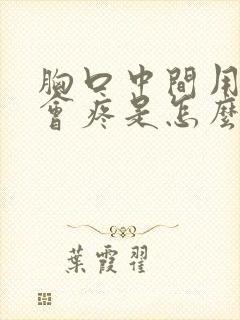 胸口中間
會疼是怎麼
葉霞翟